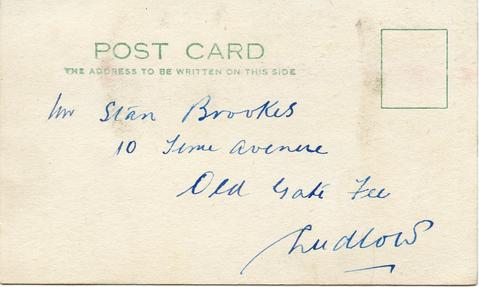 POST CARD
THE ADDRESS TO BE WRITTEN ON THIS SIDE
Mr Stan Brookes
10 Teme Avenue
Old Gate Fee
Ludlow